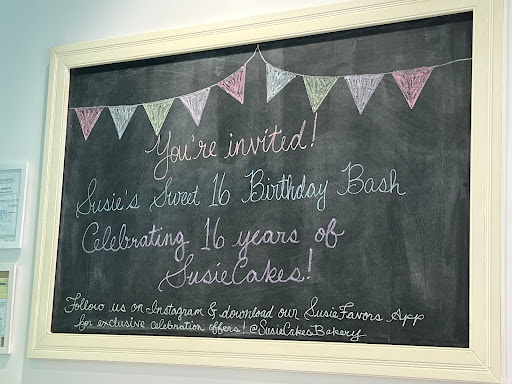 You're invited!
Susie's Sweet 16 Birthday Bash
Celebrating 16 years of
SusieCakes!
Follow us on Instagram & download our SusieFavors App
for exclusive celebration offers! @SusieCakesBakery